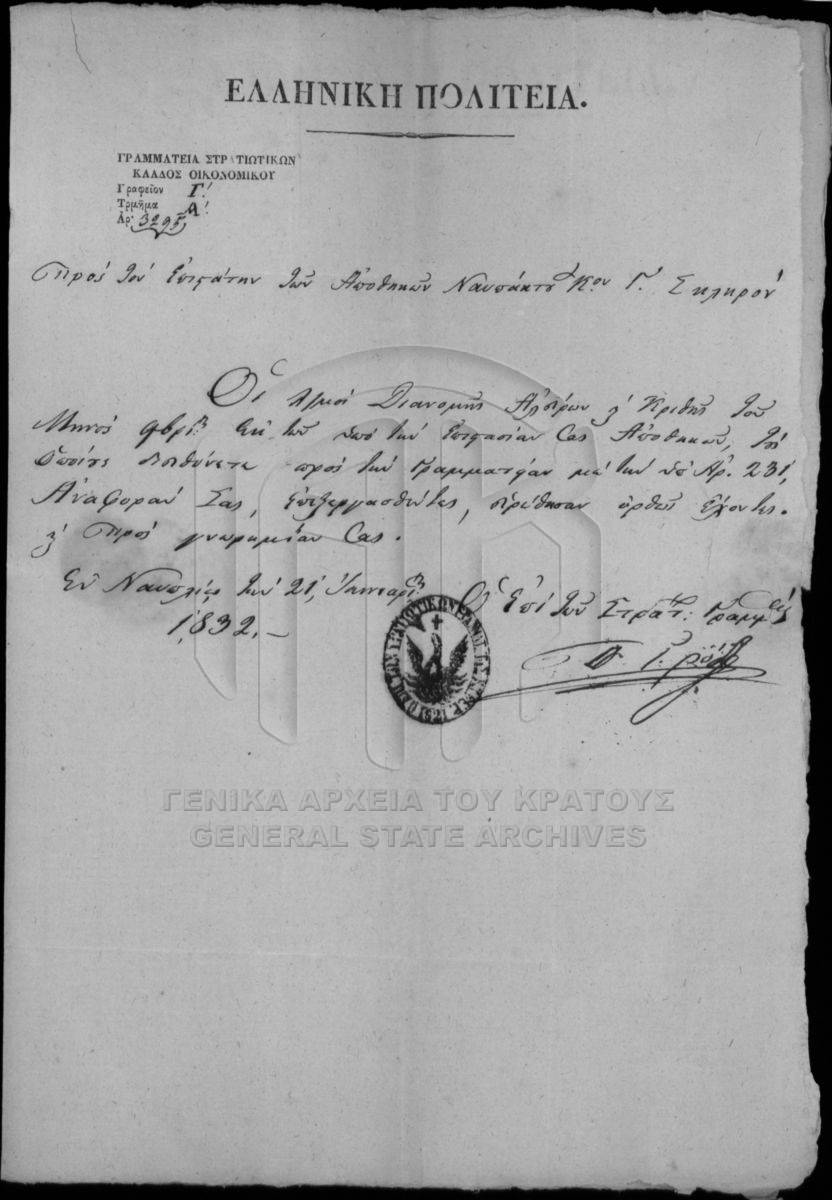 ΕΛΛΗΝΙΚΗ ΠΟΛΙΤΕΙΑ.
ΓΡΑΜΜΑΤΕΙΑ ΣΤΡΑΤΙΩΤΙΚΩΝ
ΚΛΑΔΟΣ ΟΙΚΟΝΟΜΙΚΟΥ
Γραφεῖον Γ'.
Τμῆμα Α'.
Ἀρ. 3295
Πρὸς τὸν Ἐπιστάτην τῶν Ἀποθηκῶν Ναυπάκτου Κον Γ. Σκληρόν
Οἱ λ/σμοὶ Διανομῆς Ἀλεύρων κ' Κριθῆς τοῦ
Μηνὸς 9βρίου ἐκ τῶν ὑπὸ τὴν Ἐπιστασίαν Σας Ἀποθηκῶν, τοὺς
ὁποίους διευθύνετε πρὸς τὴν Γραμματείαν μὲ τὴν ὑπ' Ἀρ. 231,
Ἀναφοράν Σας, ἐπεξεργασθέντες, εὑρέθησαν ὀρθῶς ἔχοντες.
κ' Πρὸς γνωριμίαν Σας.
Ἐν Ναυπλίῳ τὴν 21, Ἰανουαρίου
1832.—
Ὁ Ἐπὶ τῶν Στρατ: Γραμμτεὺς
ΓΕΝΙΚΑ ΑΡΧΕΙΑ ΤΟΥ ΚΡΑΤΟΥΣ
GENERAL STATE ARCHIVES